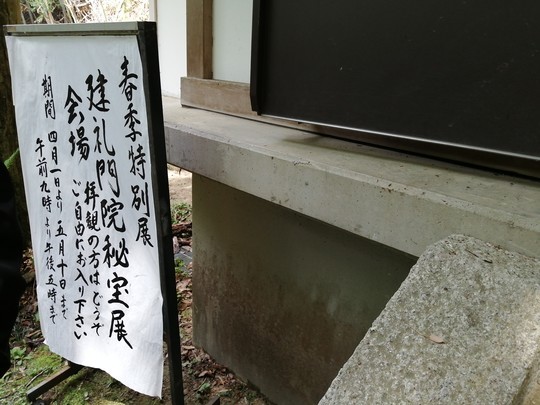 春季特別展
建礼門院秘宝展
会場
拝観の方はどうぞ
ご自由にお入り下さい
期間 四月一日より五月十日まで
午前九時より午後五時まで